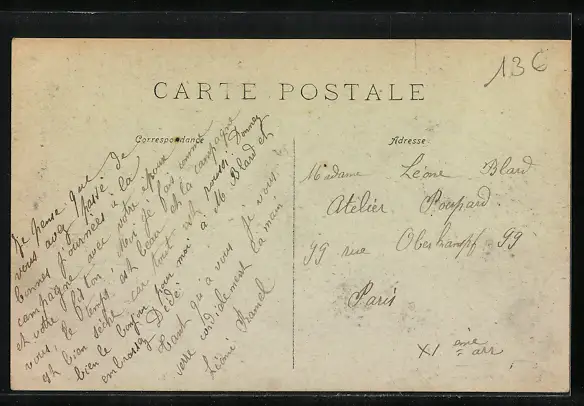 136
CARTE POSTALE
Correspondance
Je pense que de
vous avez passé de
bonnes journées à la
campagne avec votre époux
et votre fiston moi je fais comme
vous. le temps est beau et la campagne
est bien sèche car tout est poussé. Donnez
bien le bonjour pour moi à M. Blard et
embrassez Dédé
Quant à vous je vous
serre cordialement la main
Léonie
Adresse
Madame Léone Blard
Atelier Poupard
99 rue Oberkampf 99
Paris
XI ème arr